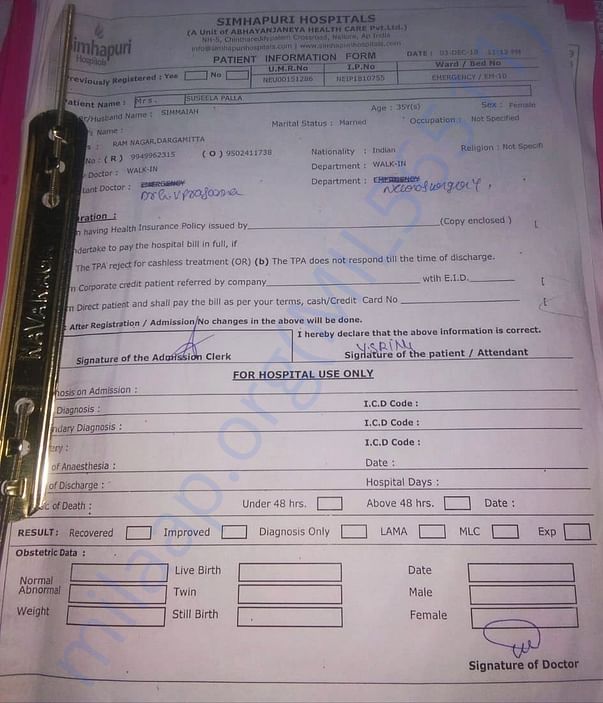 SIMHAPURI HOSPITALS
(A Unit of ABHAYANJANEYA HEALTH CARE Pvt.Ltd.)
NH-5, Chinthareddypalem Crossroad, Nellore, Ap India
info@simhapurihospitals.com | www.simhapurihospitals.com
imhapuri
Hospitals
PATIENT INFORMATION FORM
DATE : 03-DEC-18
U.M.R.No I.P.No Ward / Bed No
reviously Registered : Yes No NEU00151286 NEIP1810755 EMERGENCY / EM-10
atient Name : Mrs. SUSEELA PALLA
/Husband Name : SIMMAIAH Age : 35Y(s) Sex : Female
's Name : Marital Status : Married Occupation : Not Specified
: RAM NAGAR,DARGAMITTA
No : ( R ) 9949962315 ( O ) 9502411738 Nationality : Indian Religion : Not Specifi
Doctor : WALK-IN Department : WALK-IN
tant Doctor : EMERGENCY Department : EMERGENCY
Neurosurgery,
aration :
n having Health Insurance Policy issued by (Copy enclosed )
ndertake to pay the hospital bill in full, if
The TPA reject for cashless treatment (OR) (b) The TPA does not respond till the time of discharge.
n Corporate credit patient referred by company wtih E.I.D.
n Direct patient and shall pay the bill as per your terms, cash/Credit Card No
: After Registration / Admission/No changes in the above will be done.
I hereby declare that the above information is correct.
Signature of the Admission Clerk Signature of the patient / Attendant
FOR HOSPITAL USE ONLY
nosis on Admission :
Diagnosis : I.C.D Code :
ndary Diagnosis : I.C.D Code :
ery : I.C.D Code :
of Anaesthesia : Date :
of Discharge : Hospital Days :
of Death : Under 48 hrs. Above 48 hrs. Date :
RESULT: Recovered Improved Diagnosis Only LAMA MLC Exp
Obstetric Data :
Normal Live Birth Date
Abnormal Twin Male
Weight Still Birth Female
Signature of Doctor
NAVAKAR